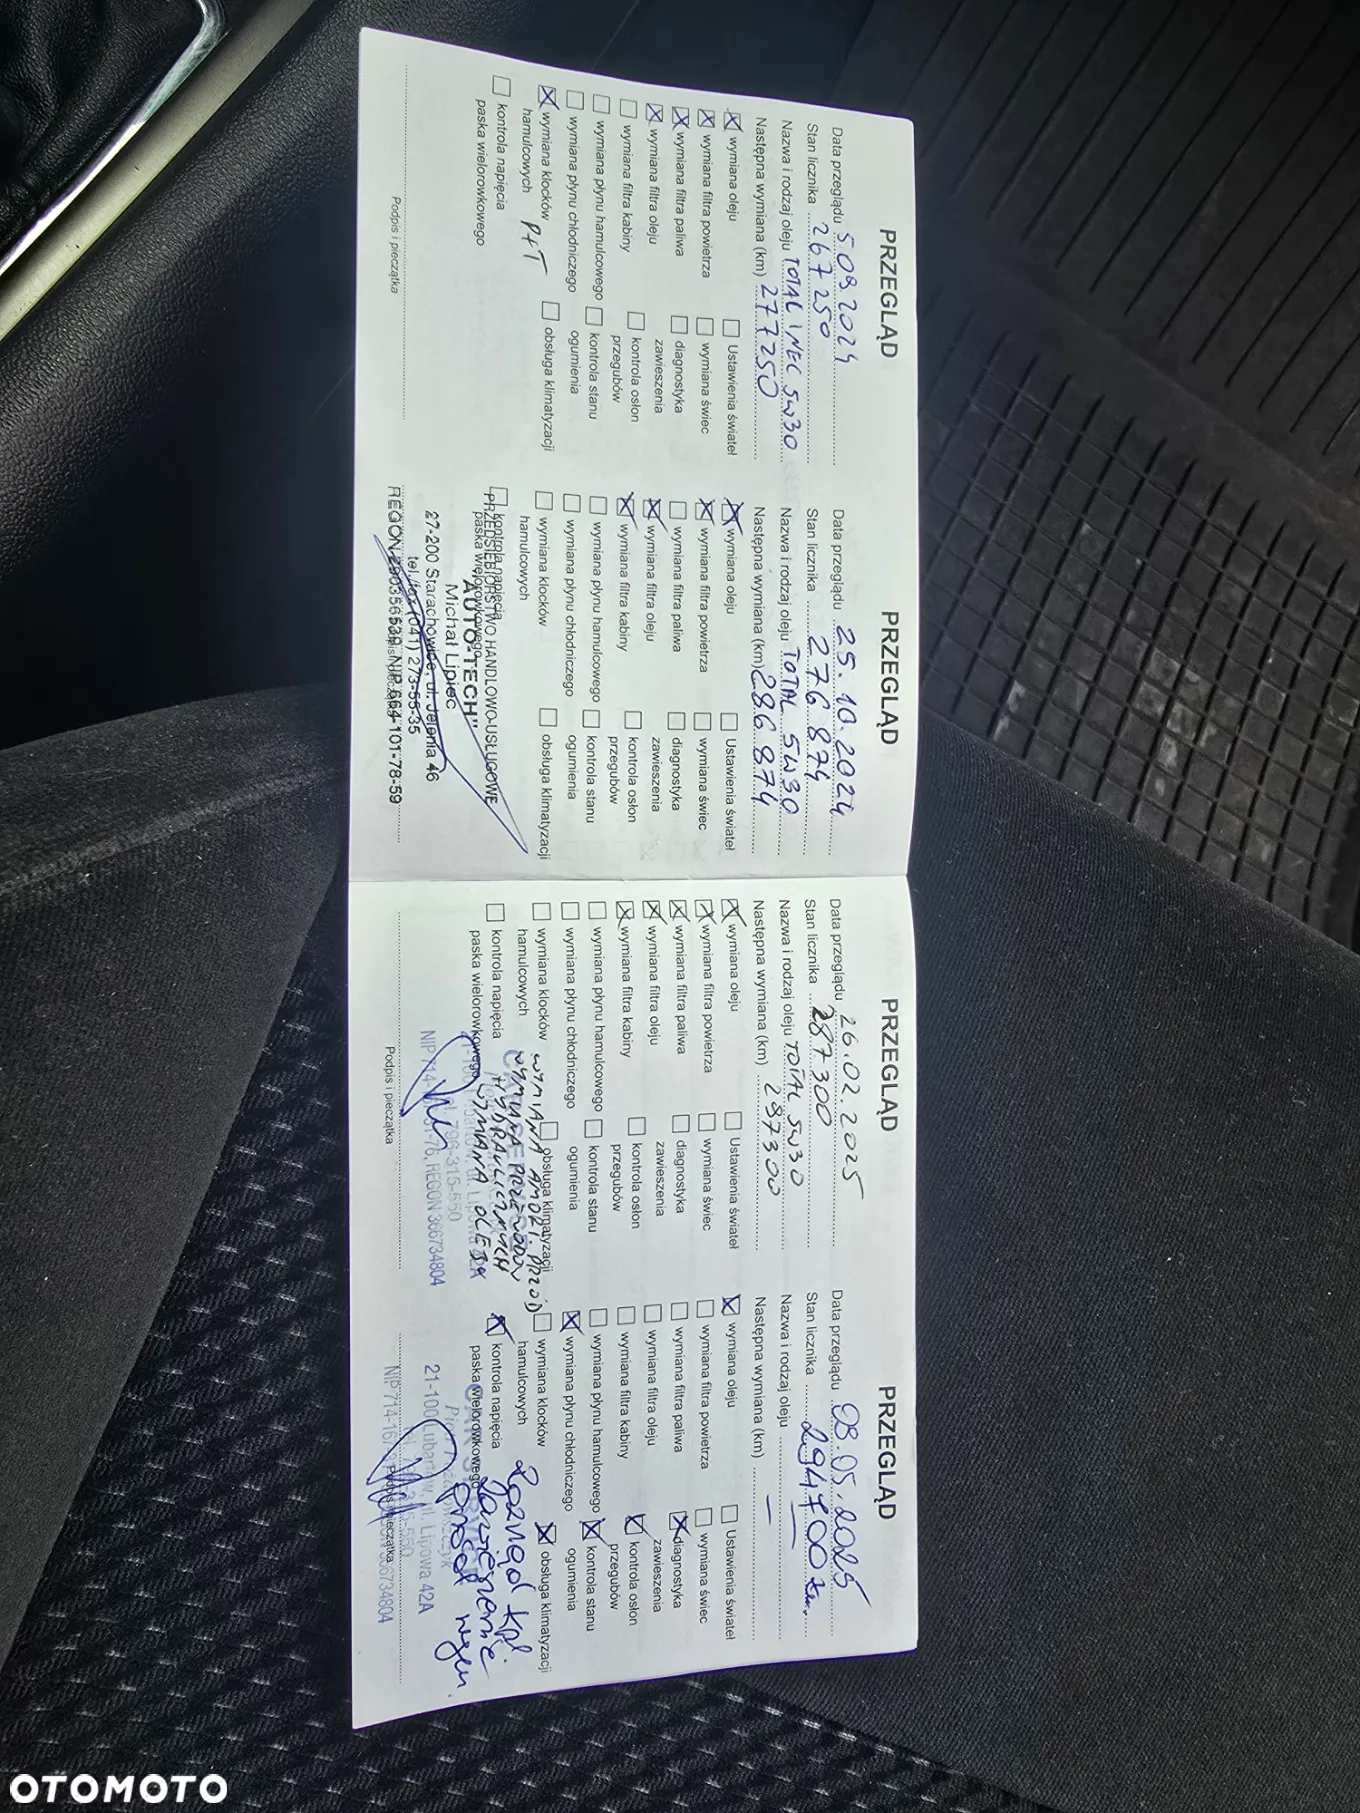 PRZEGLĄD
Data przeglądu 5.09.2024
Stan licznika 267250
Nazwa i rodzaj oleju TOTAL INEC 5W30
Następna wymiana (km) 277250
wymiana oleju
Ustawienia świateł
wymiana filtra powietrza
wymiana świec
wymiana filtra paliwa
diagnostyka
wymiana filtra oleju
zawieszenia
wymiana filtra kabiny
kontrola osłon
przegubów
wymiana płynu hamulcowego
kontrola stanu
wymiana płynu chłodniczego
ogumienia
wymiana klocków
obsługa klimatyzacji
hamulcowych P+T
kontrola napięcia
paska wielorowkowego
Podpis i pieczątka
PRZEGLĄD
Data przeglądu 25.10.2024
Stan licznika 276874
Nazwa i rodzaj oleju TOTAL 5W30
Następna wymiana (km) 286874
wymiana oleju
Ustawienia świateł
wymiana filtra powietrza
wymiana świec
wymiana filtra paliwa
diagnostyka
wymiana filtra oleju
zawieszenia
wymiana filtra kabiny
kontrola osłon
przegubów
wymiana płynu hamulcowego
kontrola stanu
wymiana płynu chłodniczego
ogumienia
wymiana klocków
obsługa klimatyzacji
hamulcowych
kontrola napięcia
paska wielorowkowego
PRZEDSIĘBIORSTWO HANDLOWO-USŁUGOWE
"AUTO-TECH"
Michał Lipiec
27-200 Starachowice, ul. Jelenia 46
tel./fax (041) 273-55-35
REGON 290356539 NIP 664-101-78-59
PRZEGLĄD
Data przeglądu 26.02.2025
Stan licznika 287300
Nazwa i rodzaj oleju TOTAL 5W30
Następna wymiana (km) 297300
wymiana oleju
Ustawienia świateł
wymiana filtra powietrza
wymiana świec
wymiana filtra paliwa
diagnostyka
wymiana filtra oleju
zawieszenia
wymiana filtra kabiny
kontrola osłon
przegubów
wymiana płynu hamulcowego
kontrola stanu
wymiana płynu chłodniczego
ogumienia
wymiana klocków
obsługa klimatyzacji
hamulcowych
kontrola napięcia
paska wielorowkowego
WYMIANA AMORT. PRZÓD
WYMIANA PRZEWODÓW
HYDRAULICZNYCH
WYMIANA OLEJU
ul. Lipowa 42A
796-315-550
REGON 366734804
Podpis i pieczątka
PRZEGLĄD
Data przeglądu 08.05.2025
Stan licznika 294700 km.
Nazwa i rodzaj oleju —
Następna wymiana (km) —
wymiana oleju
Ustawienia świateł
wymiana filtra powietrza
wymiana świec
wymiana filtra paliwa
diagnostyka
wymiana filtra oleju
zawieszenia
wymiana filtra kabiny
kontrola osłon
przegubów
wymiana płynu hamulcowego
kontrola stanu
wymiana płynu chłodniczego
ogumienia
wymiana klocków
obsługa klimatyzacji
hamulcowych
kontrola napięcia
paska wielorowkowego
Rozrząd kpl.
zawieszenie
przód
21-100 Lubartów, ul. Lipowa 42A
Podpis i pieczątka
OTOMOTO